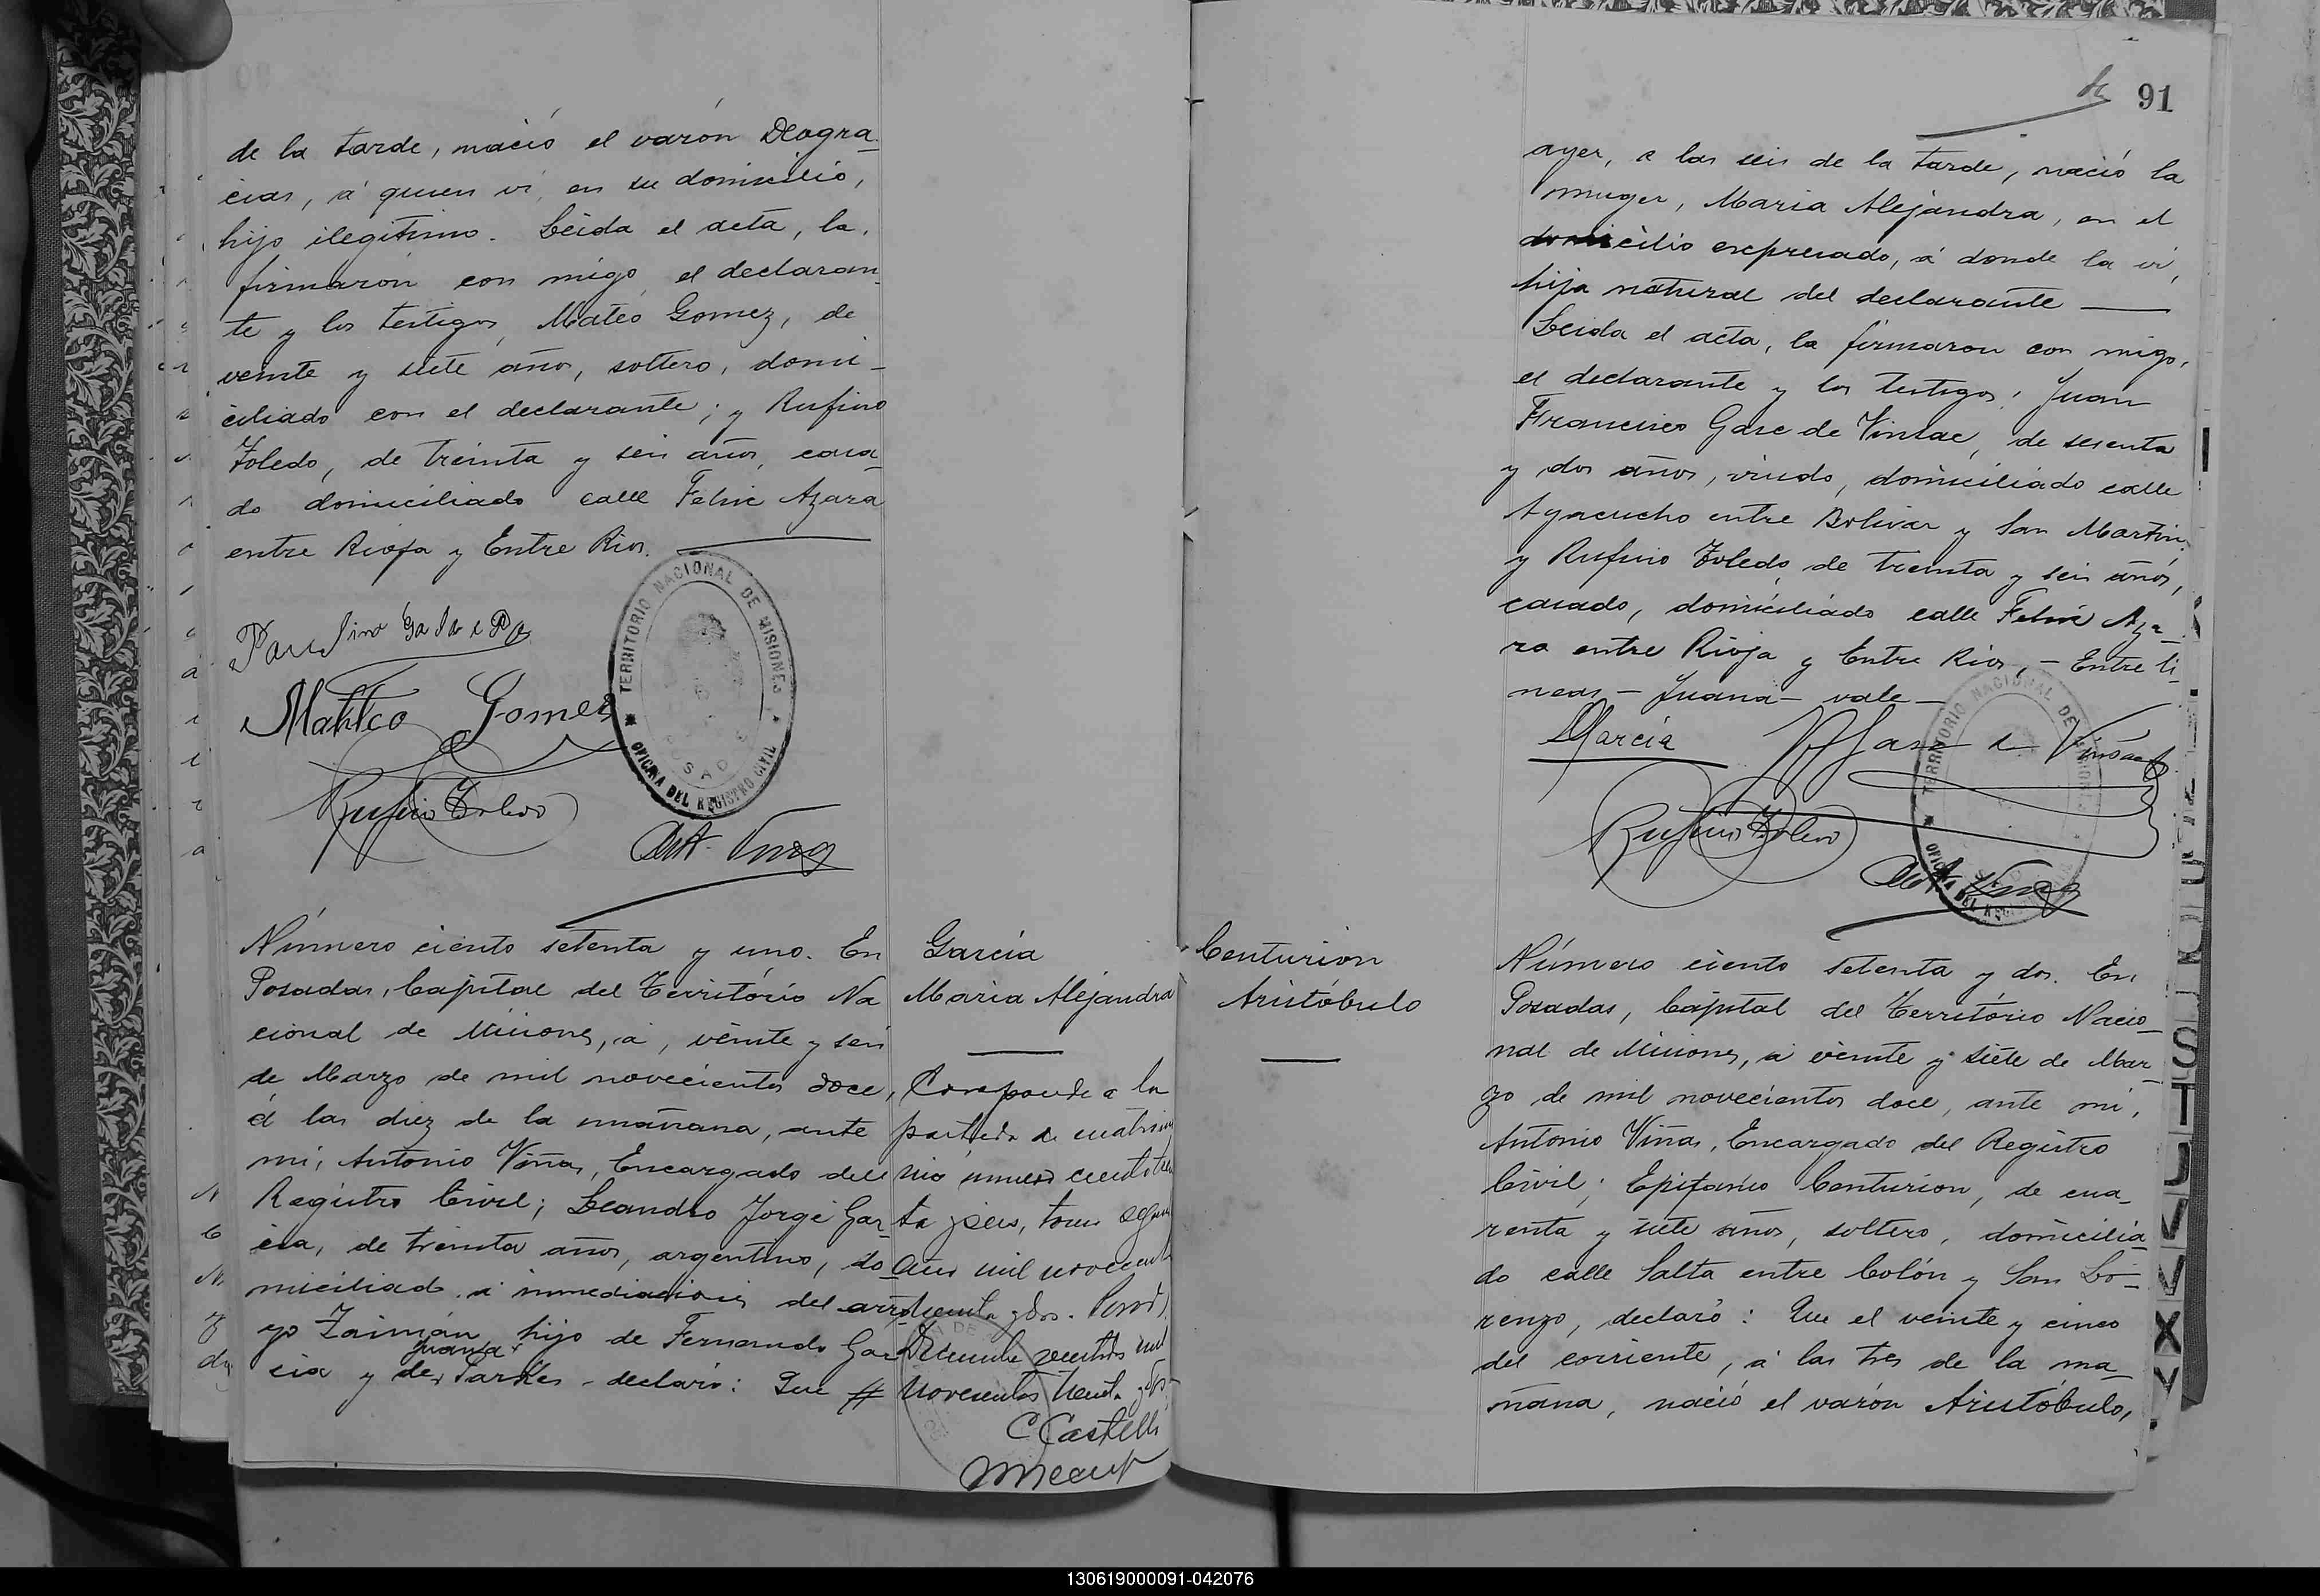 de la tarde, nació el varón Deogra_
cias, á quien ví, en su domicilio,
hijo ilegítimo. Leida el acta, la
firmarón con migo, el declaran_
te y los testigos, Mateo Gomez, de
veinte y siete años, soltero, domi_
ciliado con el declarante; y Rufino
Toledo, de treinta y seis años, casa_
do domiciliado calle Felix Azara
entre Rioja y Entre Rios.
TERRITORIO NACIONAL DE MISIONES
POSADAS
OFICINA DEL REGISTRO CIVIL
Matteo Gomez
Rufino Toledo
Ant. Vinas
Número ciento setenta y uno. En
Posadas, Capital del Território Na
cional de Misiones, á, veinte y seis
de Marzo de mil novecientos doce,
á las diez de la mañana, ante
mí, Antonio Viñas, Encargado del
Registro Civil; Leandro Jorge Gar_
cia, de treinta años, argentino, do_
miciliado á inmediaciones del arro
yo Zaimán, hijo de Fernando Gar
Juana
cia y de, Parkes - declaró: Que #
García
Maria Alejandra
Corresponde a la
partida de matrimo
nio número ciento trein
ta y seis, tomo segundo
año mil novecientos
treinta y dos. Posadas
Diciembre veintitres mil
novecientos treinta y dos-
C Castelli
91
ayer, a las seis de la tarde, nació la
muger, Maria Alejandra, en el
domicilio expresado, á donde la ví,
hija natural del declarante
Leida el acta, la firmaron con migo,
el declarante y los testigos: Juan
Francisco Gasc de Vinsac, de sesenta
y dos años, viudo, domiciliado calle
Ayacucho entre Bolivar y San Martin,
y Rufino Toledo de treinta y seis años,
casado, domiciliado calle Felix Aza_
ra entre Rioja y Entre Rios, - Entre li_
neas - Juana - vale -
García
Rufino Toledo
TERRITORIO NACIONAL DE MISIONES
OFICINA DEL REGISTRO CIVIL
Ant. Vinas
Centurion
Aristóbulo
Número ciento setenta y dos. En
Posadas, Capital del Território Nacio_
nal de Misiones, á veinte y siete de Mar_
zo de mil novecientos doce, ante mí,
Antonio Viñas, Encargado del Registro
Civil; Epifanio Centurion, de cua_
renta y siete años, soltero, domicilia_
do calle Salta entre Colón y San Lo_
renzo, declaró: Que el veinte y cinco
del corriente, á las tres de la ma_
ñana, nació el varón Aristóbulo,
S
T
U
V
V
X
Y
130619000091-042076